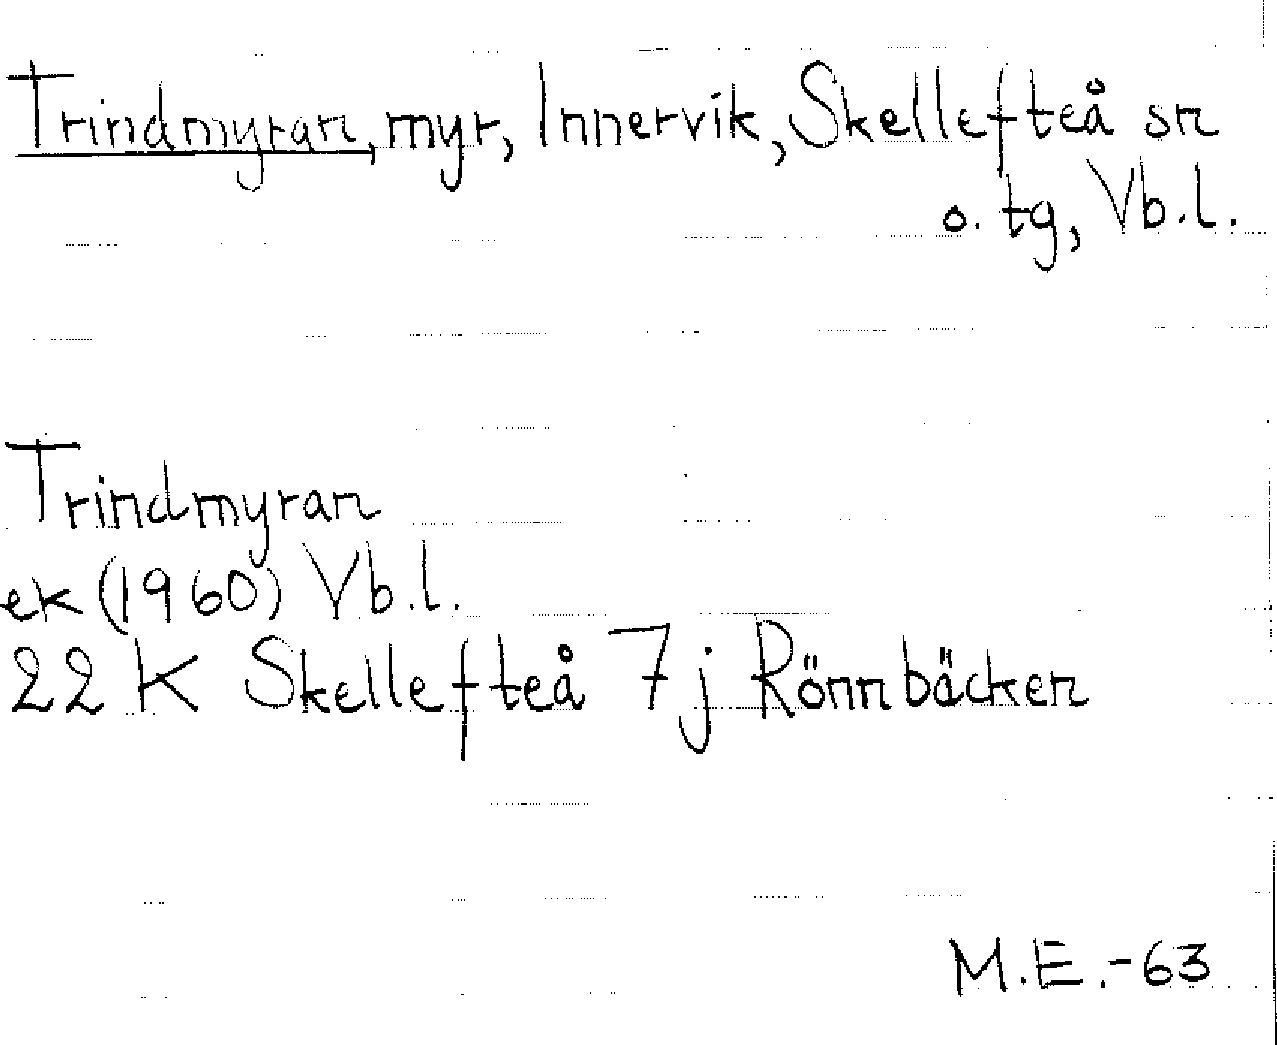 Trindmyran, myr, Innervik, Skellefteå sn
o. tg, Vb.l.
Trindmyran
ek (1960) Vb.l.
22 K Skellefteå 7j Rönnbäcken
M.E.-63